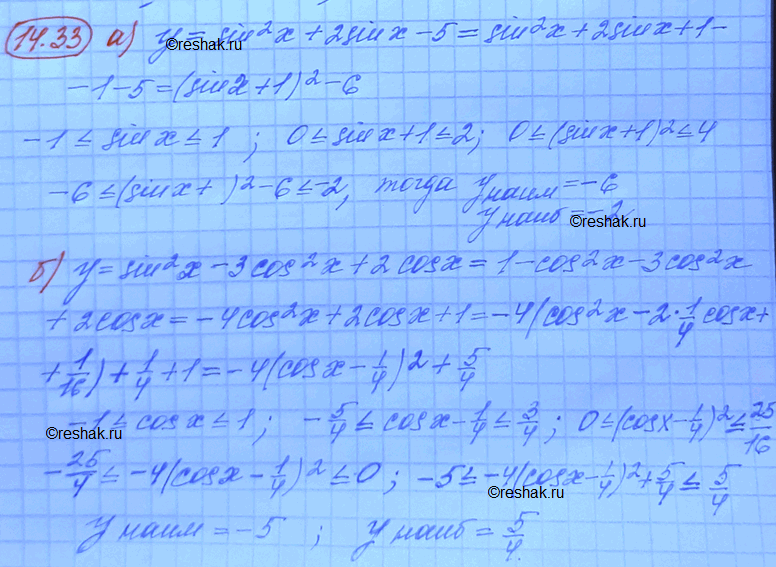 14.33 а) y = sin²x + 2sinx - 5 = sin²x + 2sinx + 1 -
©reshak.ru
- 1 - 5 = (sinx + 1)² - 6
-1 ≤ sinx ≤ 1 ; 0 ≤ sinx + 1 ≤ 2 ; 0 ≤ (sinx + 1)² ≤ 4
-6 ≤ (sinx + )² - 6 ≤ -2, тогда y наим = -6
y наиб = -2
©reshak.ru
б) y = sin²x - 3cos²x + 2cosx = 1 - cos²x - 3cos²x
+ 2cosx = -4cos²x + 2cosx + 1 = -4(cos²x - 2·1/4 cosx +
+ 1/16) + 1/4 + 1 = -4(cosx - 1/4)² + 5/4
-1 ≤ cosx ≤ 1 ; -5/4 ≤ cosx - 1/4 ≤ 3/4 ; 0 ≤ (cosx - 1/4)² ≤ 25/16
©reshak.ru
-25/4 ≤ -4(cosx - 1/4)² ≤ 0 ; -5 ≤ -4(cosx - 1/4)² + 5/4 ≤ 5/4
©reshak.ru
y наим = -5 ; y наиб = 5/4.